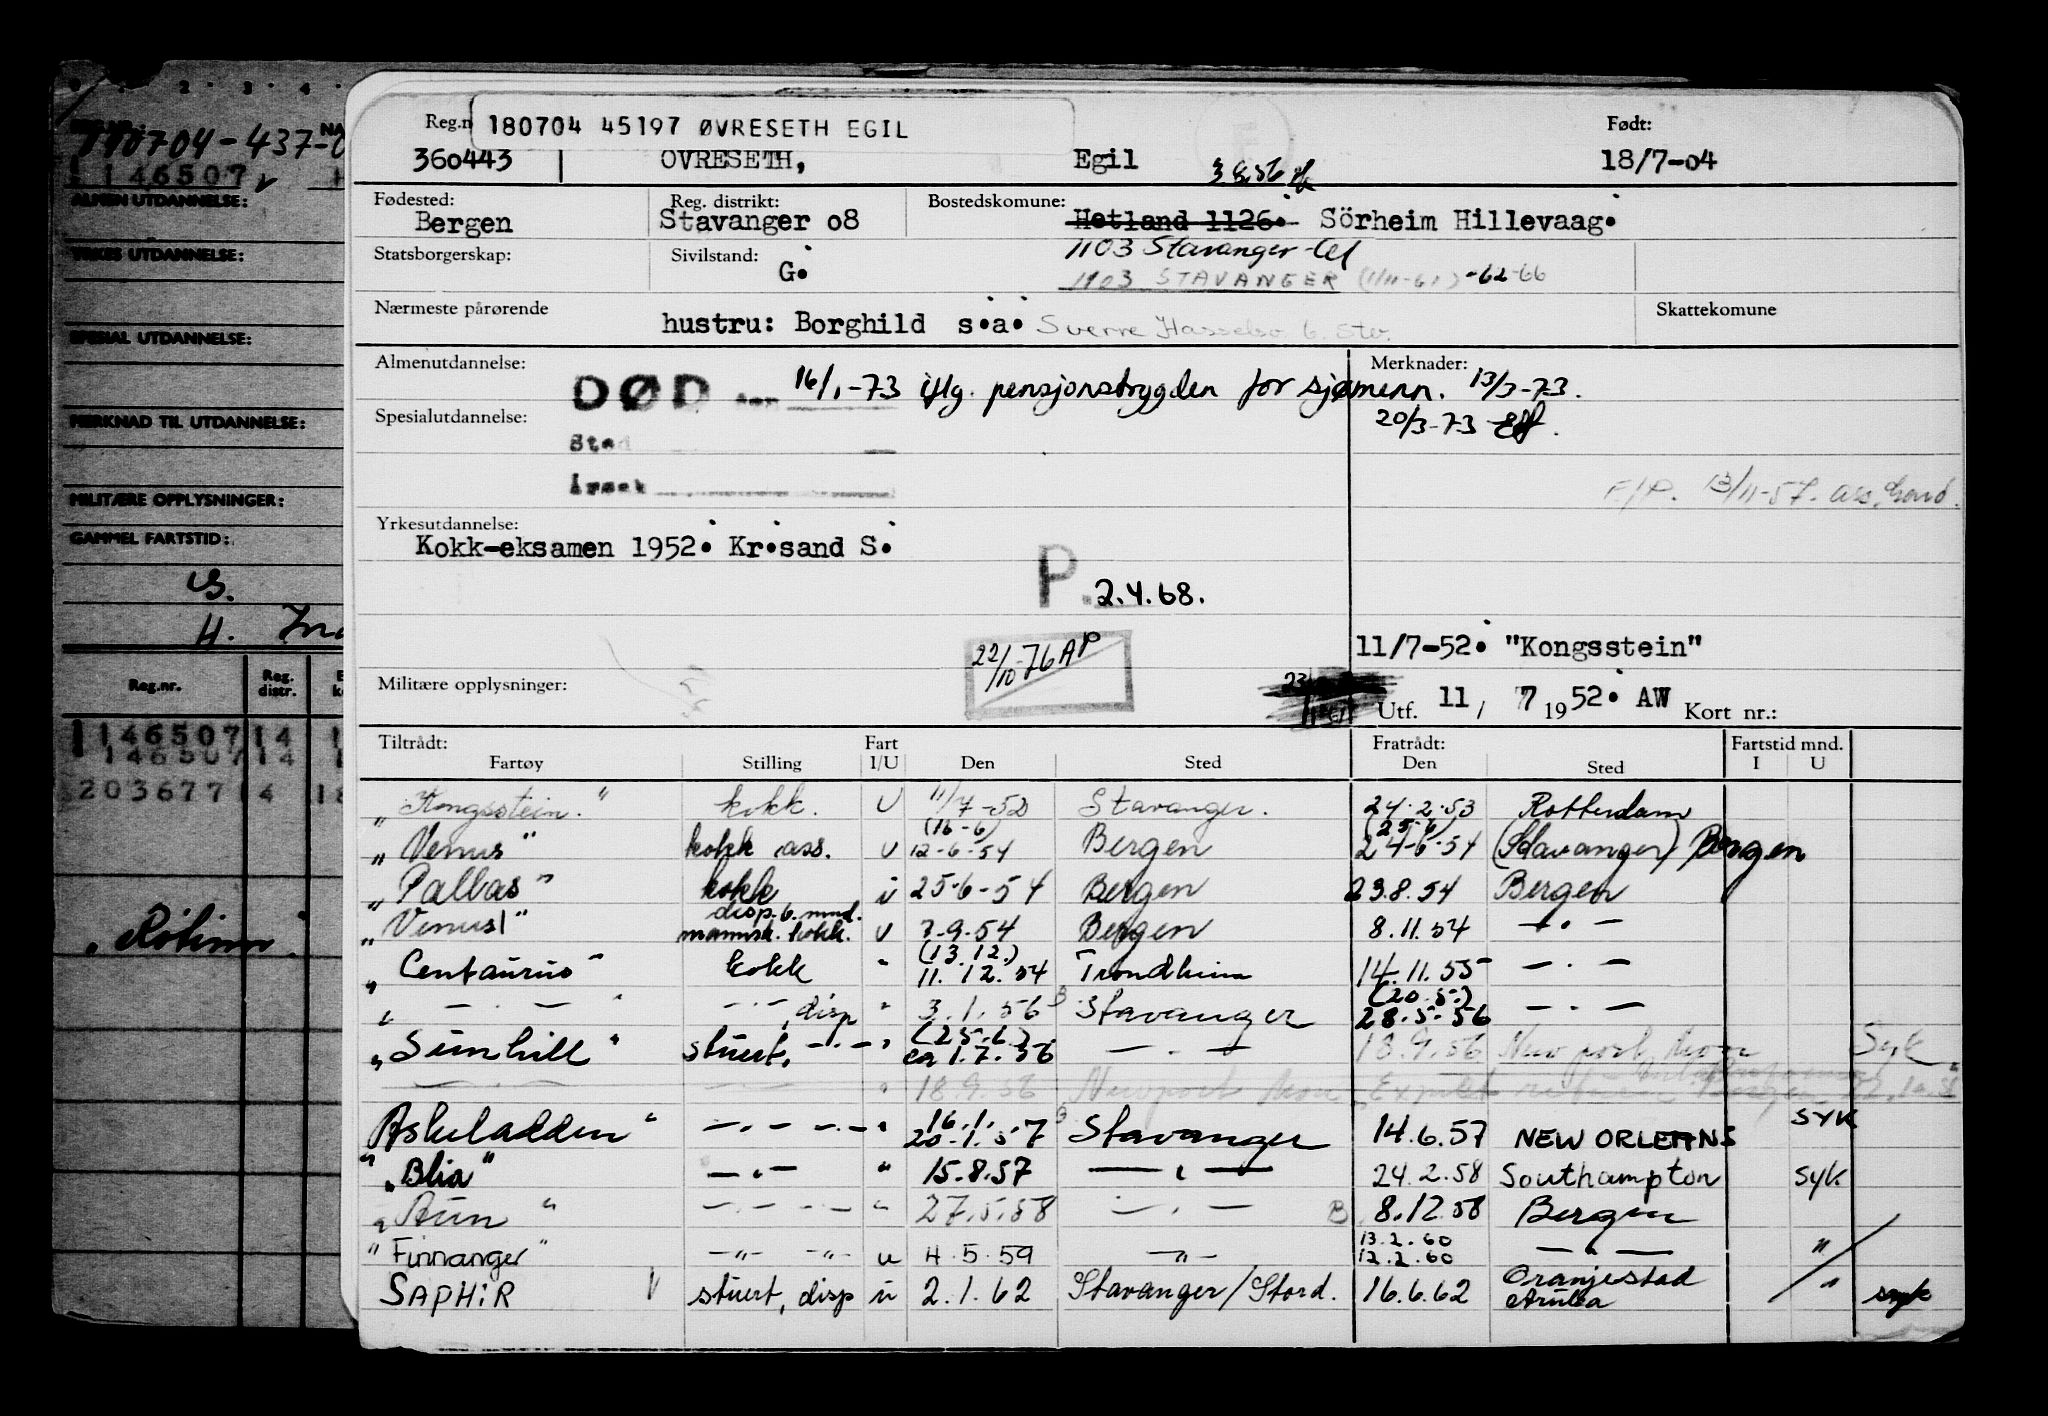 180704-437-0
146507
ALMEN UTDANNELSE:
YRKES UTDANNELSE:
SPESIAL UTDANNELSE:
MERKNAD TIL UTDANNELSE:
MILITÆRE OPPLYSNINGER:
GAMMEL FARTSTID:
S.
H.
Reg.nr. Reg. distr.
1146507 14 1
146507 14 1
203677 14 18
Reg.n 180704 45197 ØVRESETH EGIL Født:
360443 OVRESETH, Egil 18/7-04
3.8.56
Fødested: Reg. distrikt: Bostedskomune:
Bergen Stavanger o8 Hetland 1126. Sörheim Hillevaag.
Statsborgerskap: Sivilstand: 1103 Stavanger
G. 1103 STAVANGER (1/11-61) -62-66
Nærmeste pårørende Skattekomune
hustru: Borghild s.a. Sverre
Almenutdannelse: Merknader:
DØD den 16/1-73 iflg. pensjonstrygden for sjømenn. 13/3-73.
Spesialutdannelse: 20/3-73
Sted
Årsak
F/P. 13/11-57. ass.
Yrkesutdannelse:
Kokk-eksamen 1952. Kr.sand S.
P. 2.4.68.
11/7-52. "Kongsstein"
22/10-76 AP
Militære opplysninger: Utf. 11 / 7 1952. AW Kort nr.:
Tiltrådt: Fart Fratrådt: Fartstid mnd.
Fartøy Stilling I/U Den Sted Den Sted I U
„Kongsstein." kokk. U 11/7-52 Stavanger. 24.2.53 Rotterdam
(16-6) (25.6)
„Venus" kokk ass. U 12-6-54 Bergen 24-6-54 (Stavanger) Bergen
„Pallas" kokk i 25-6-54 Bergen 23.8.54 Bergen
disp. 6. mnd.
„Venus" mannsk. kokk. U 7-9-54 Bergen 8.11.54 — . —
(13.12.)
„Centaurus" kokk " 11.12.54 Trondheim 14.11.55 — . —
(20.5.)
„ — . — " — . —, disp " 3.1.56 Stavanger 28.5.56 — . —
(25.6.)
„Sunhill" stuert, — . — " ca 1.7.56 — . — 18.9.56 Newport Mon Syk
— . — — . — " 18.9.56 Newport Mon
16.1. SYK
Askeladden" — . — — . — " 20-1.57 Stavanger 14.6.57 NEW ORLEANS
„Blia" — . — " 15.8.57 — . — 24.2.58 Southampton SYK
„Aun" — . — — . — " 27.5.58 — . — B 8.12.58 Bergen
13.2.60
"Finnanger" — " — — " — u 4.5.59 — " — 12.2.60 — " — "
SAPHIR stuert, disp u 2.1.62 Stavanger/Stord. 16.6.62 Oranjestad " syk
Aruba